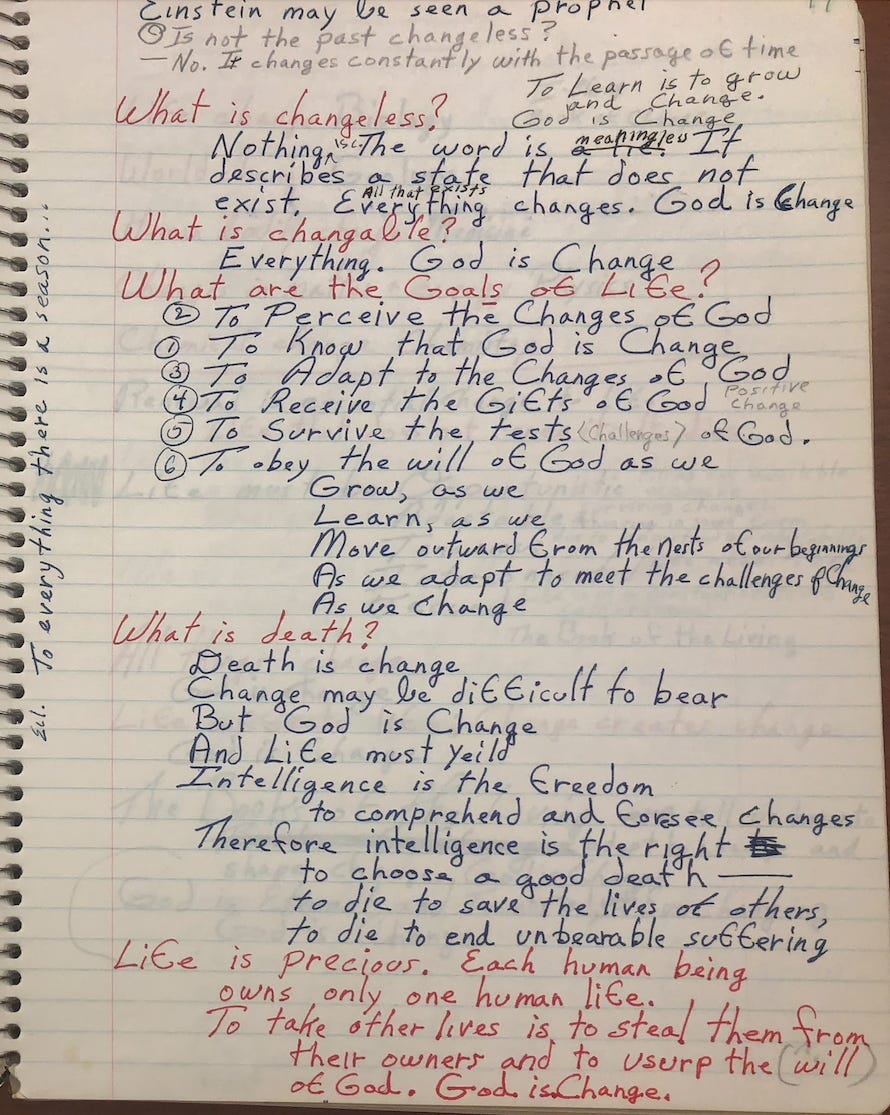 Einstein may be seen a prophet
Is not the past changeless?
— No. It changes constantly with the passage of time
To Learn is to grow
and Change.
What is changeless?
God is Change.
Nothing is. The word is a lie. meaningless It
describes a state that does not
exist. Everything All that exists changes. God is Change
What is changable?
Everything. God is Change
What are the Goals of Life?
② To Perceive the Changes of God
① To Know that God is Change
③ To Adapt to the Changes of God
④ To Receive the Gifts of God Positive Change
⑤ To Survive the tests <Challenges> of God.
⑥ To obey the will of God as we
Grow, as we
Learn, as we
Move outward from the nests of our beginnings
As we adapt to meet the challenges of Change
As we Change
What is death?
Death is change
Change may be difficult to bear
But God is Change
And Life must yeild
Intelligence is the freedom
to comprehend and foresee changes
Therefore intelligence is the right
to choose a good death —
to die to save the lives of others,
to die to end unbearable suffering
Life is precious. Each human being
owns only one human life.
To take other lives is to steal them from
their owners and to usurp the (will)
of God. God is Change.
Ecl. To everything there is a season...